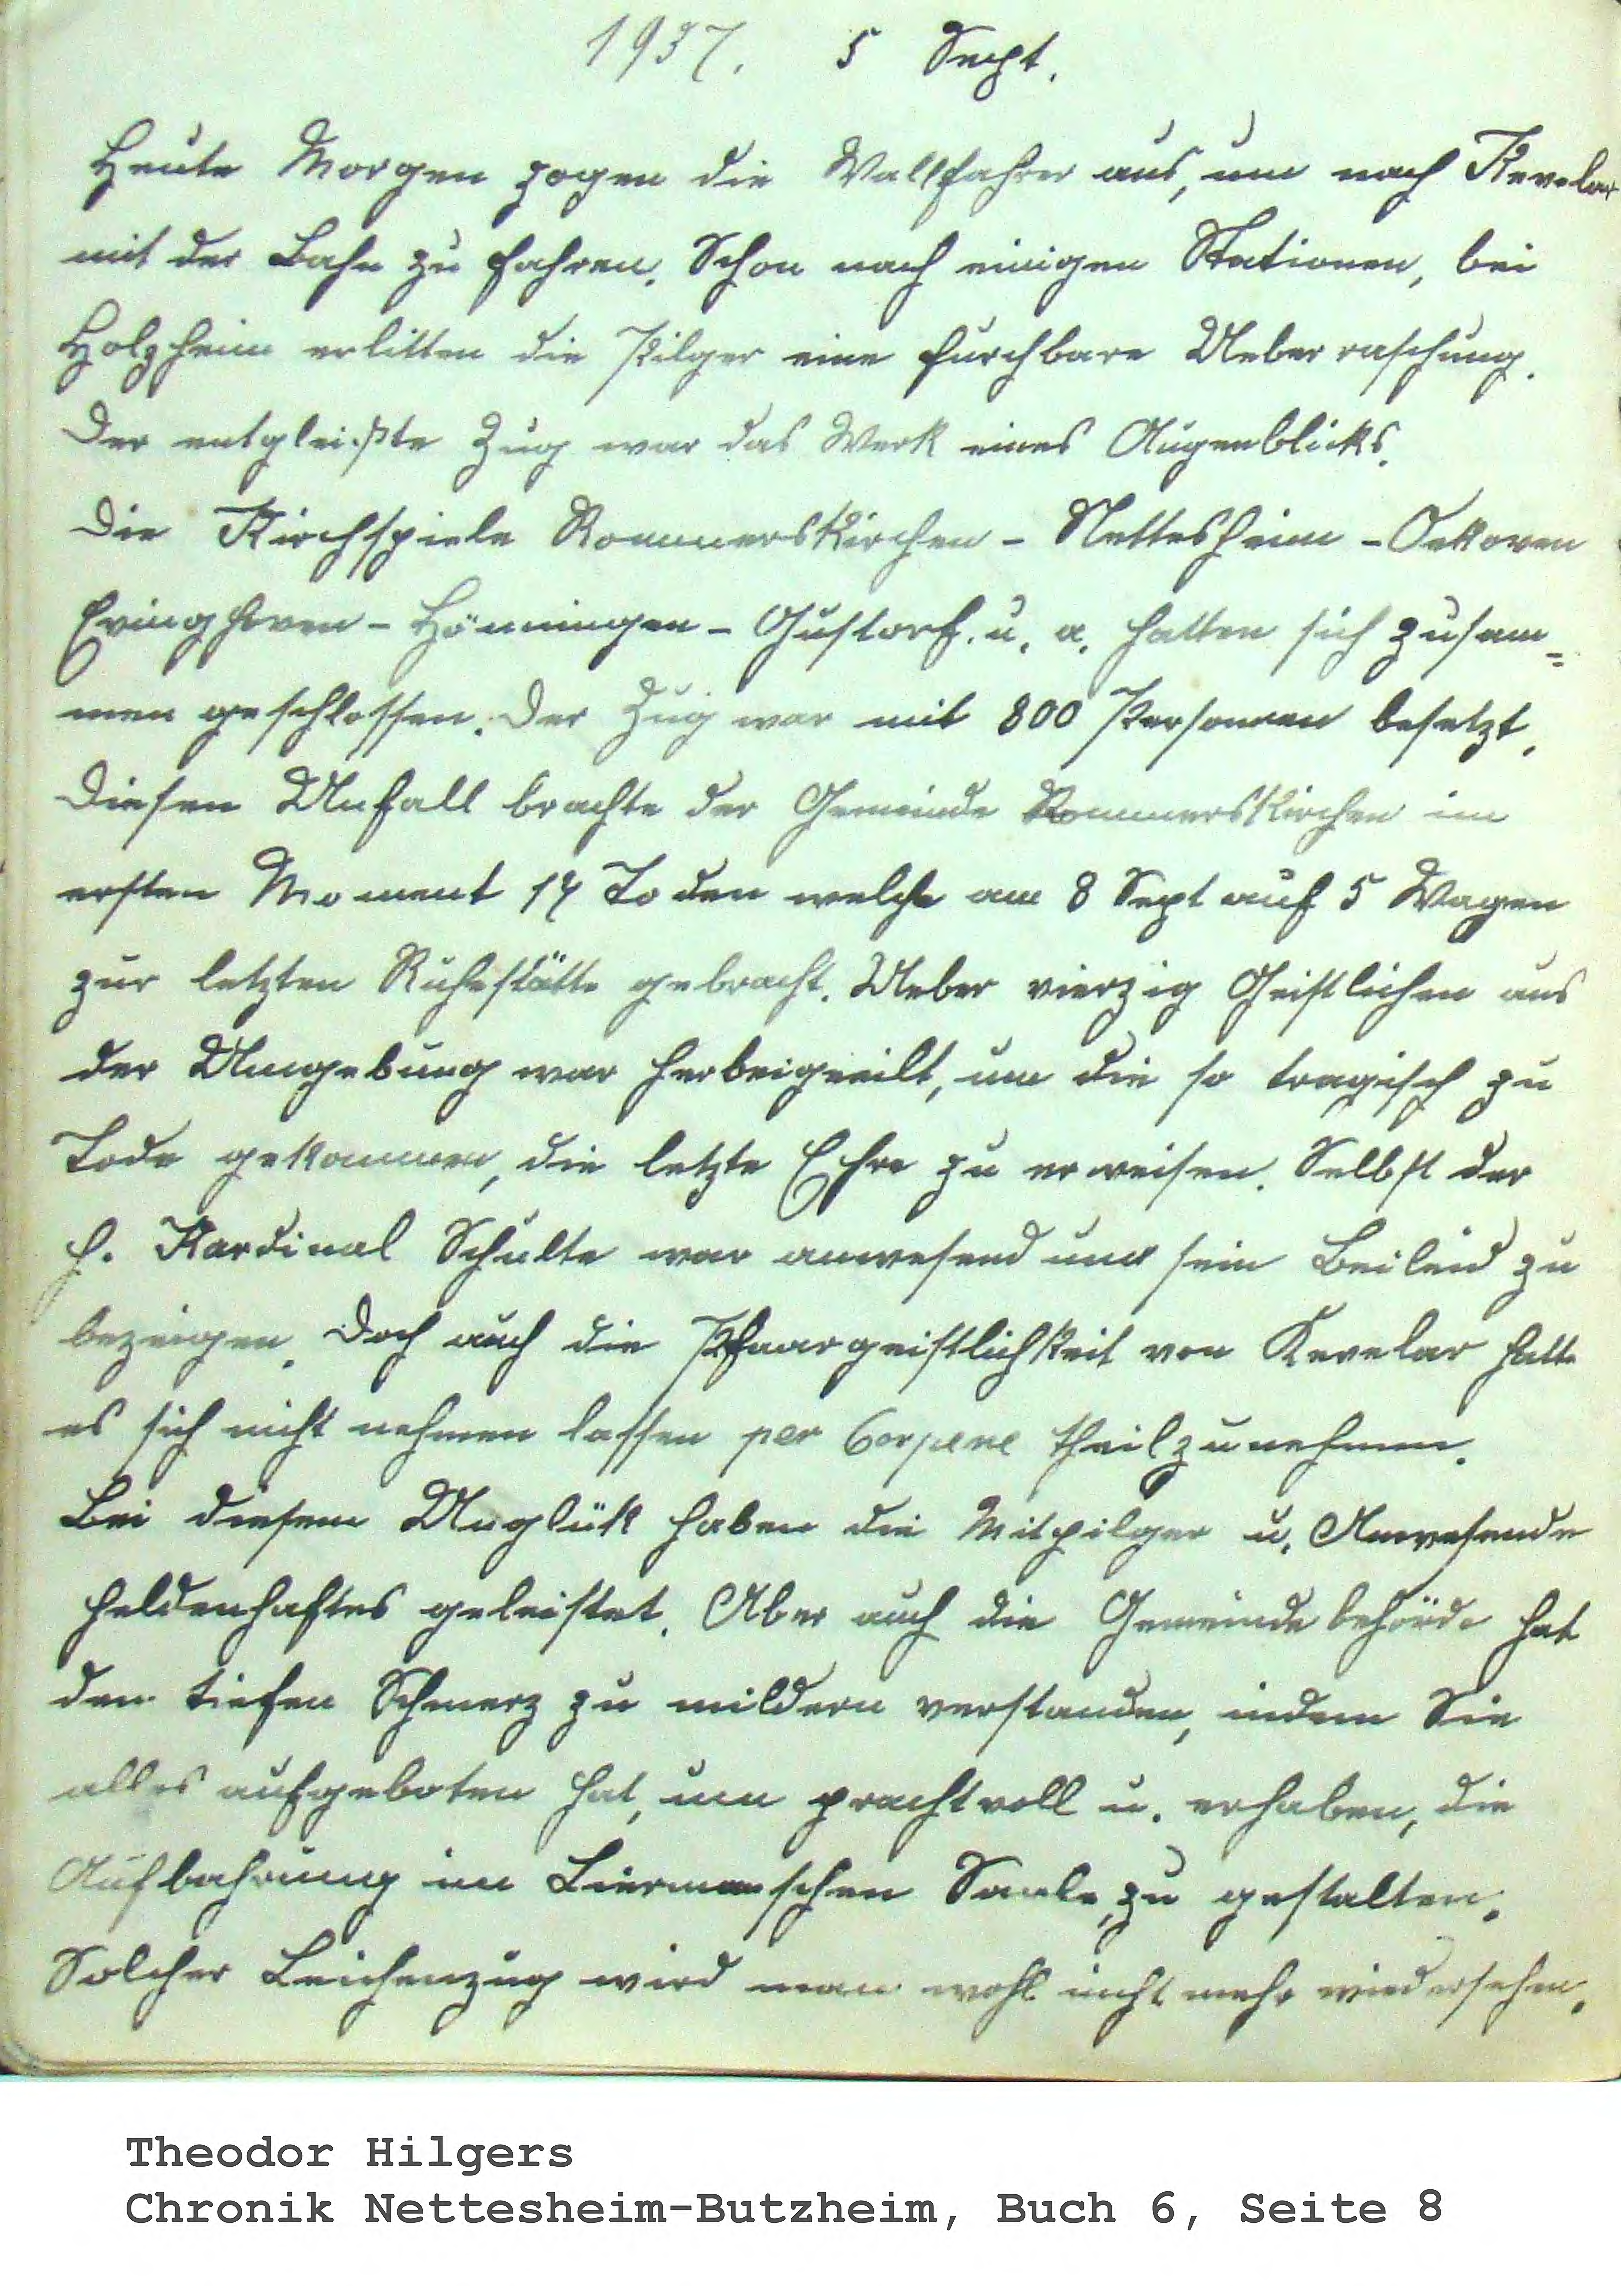 1937. 5 Sept.
Heute Morgen zogen die Wallfahrer aus, um nach Kevelar
mit der Bahn zu fahren. Schon nach einigen Stationen, bei
Holzheim erlitten die Pilger eine furchbare Ueberraschung.
Der entgleißte Zug war das Werk eines Augenblicks.
Die Kirchspiele Rommerskirchen - Nettesheim - Oekoven
Evinghoven - Hönningen - Gustorf. u. a. hatten sich zusam=
men geschlossen. Der Zug war mit 800 Personen besetzt.
Diesen Unfall brachte der Gemeinde Rommerskirchen im
ersten Moment 14 Toden welche am 8 Sept auf 5 Wagen
zur letzten Ruhestätte gebracht. Ueber vierzig Geistlichen aus
der Umgebung war herbeigeeilt, um die so tragisch zu
Tode gekommen, die letzte Ehre zu erweisen. Selbst der
h. Kardinal Schulte war anwesend und sein Beileid zu
bezeigen. Doch auch die Pfaargeistlichkeit von Kevelar hatte
es sich nicht nehmen lassen per Corpene theilzunehmen.
Bei diesem Unglük haben die Mitpilger u. Anwesende
heldenhaftes geleistet. Aber auch die Gemeindebehörde hat
den tiefen Schmerz zu mildern verstanden, indem Sie
alles aufgeboten hat, um prachtvoll u. erhaben, die
Aufbahrung im Liermanschen Saale, zu gestalten.
Solcher Leichenzug wird man wohl nicht mehr wiedersehen.
Theodor Hilgers
Chronik Nettesheim-Butzheim, Buch 6, Seite 8